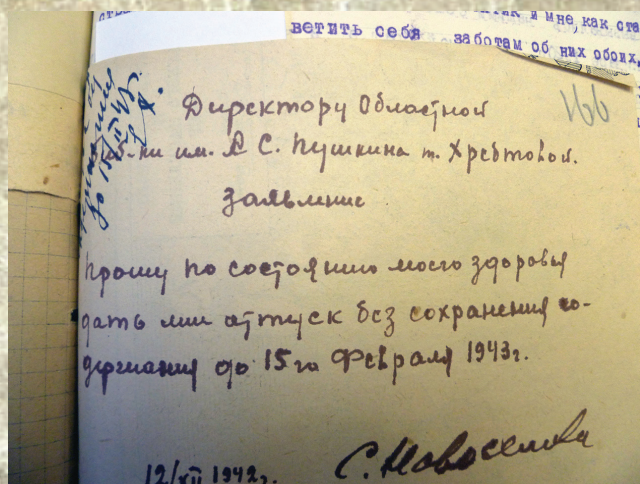 так и мне, как ста
ветить себя заботам об них обоих,
166
Директору Областной
б-ки им. А С. Пушкина т. Хребтовой.
Заявление
Прошу по состоянию моего здоровья
дать мне отпуск без сохранения со-
держания до 15го Февраля 1943г.
12/XII 1942г. С. Новоселова
до 15/II 43г.